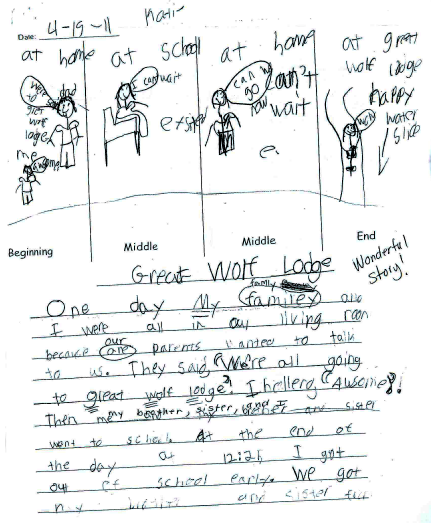 Date: 4-19-11
at home
at school
at home
at great wolf lodge
We're
to
gret
wolf
loge
dad
me
I can't wait
exsited
can we go now
can't wait
e.
happy
water slide
Beginning
Middle
Middle
End
Wonderful Story!
Great Wolf Lodge
family
One day My familey and
I were all in our living room
our
because are parents wanted to talk
to us. They said, "We're all going
to great wolf lodge"! I hollerg, "Awsome"!
Then my brother, sister, and I
went to school. At the end of
the day at 12:25 I got
out of school early. We got
my and sister